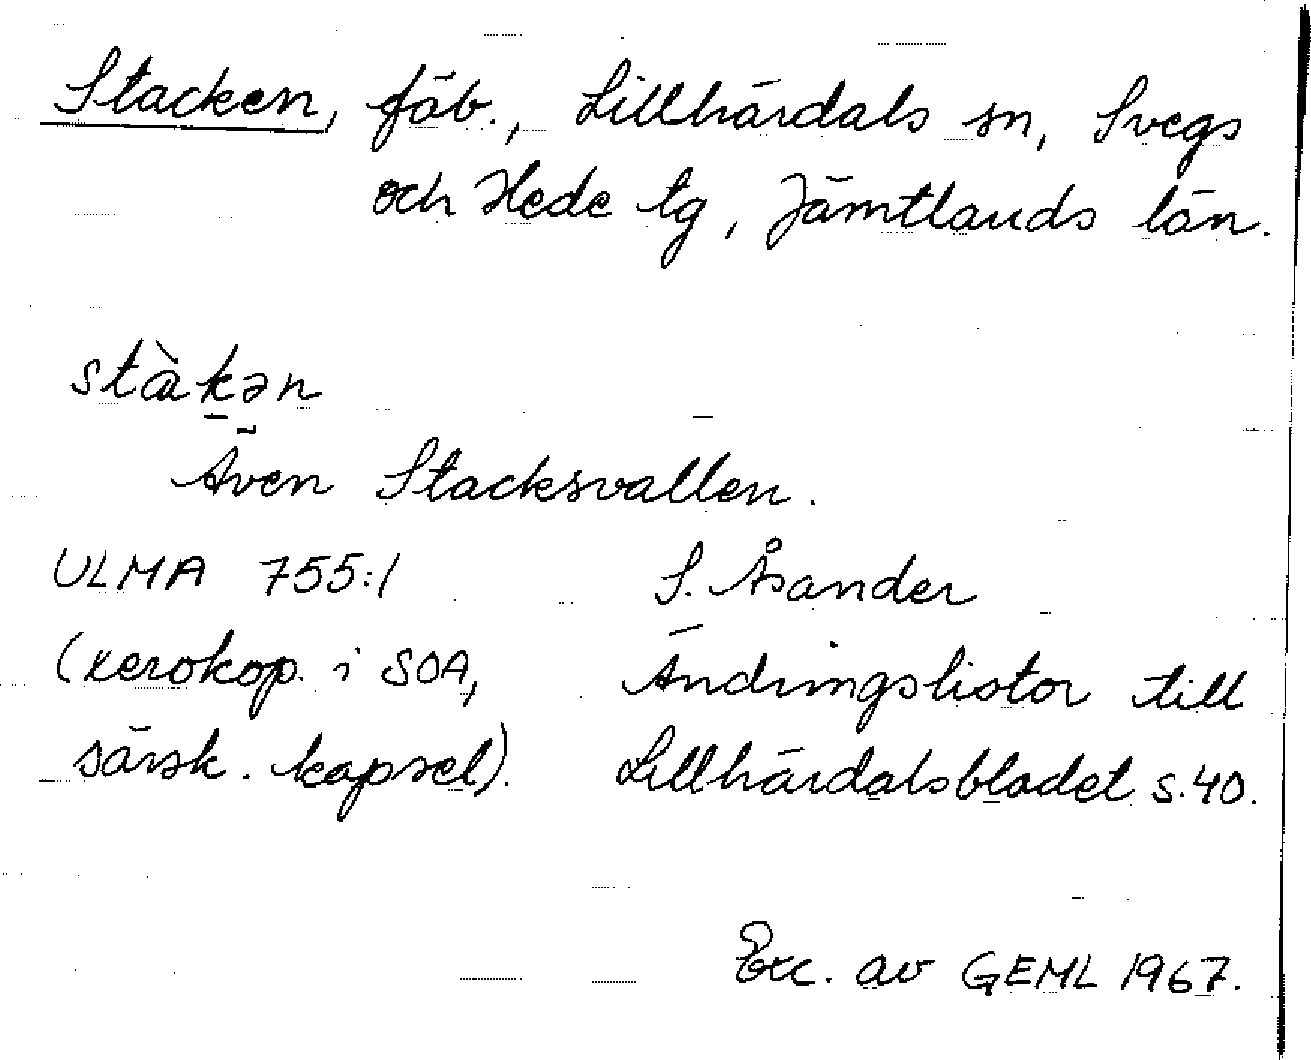 Stacken, fäb., Lillhärdals sn, Svegs
och Hede tg, Jämtlands län.
stàkən
Även Stacksvallen.
ULMA 755:1
S. Åsander
(xerokop. i SOA,
Ändringslistor till
särsk. kapsel).
Lillhärdalsbladet s.40.
Exc. av GEML 1967.